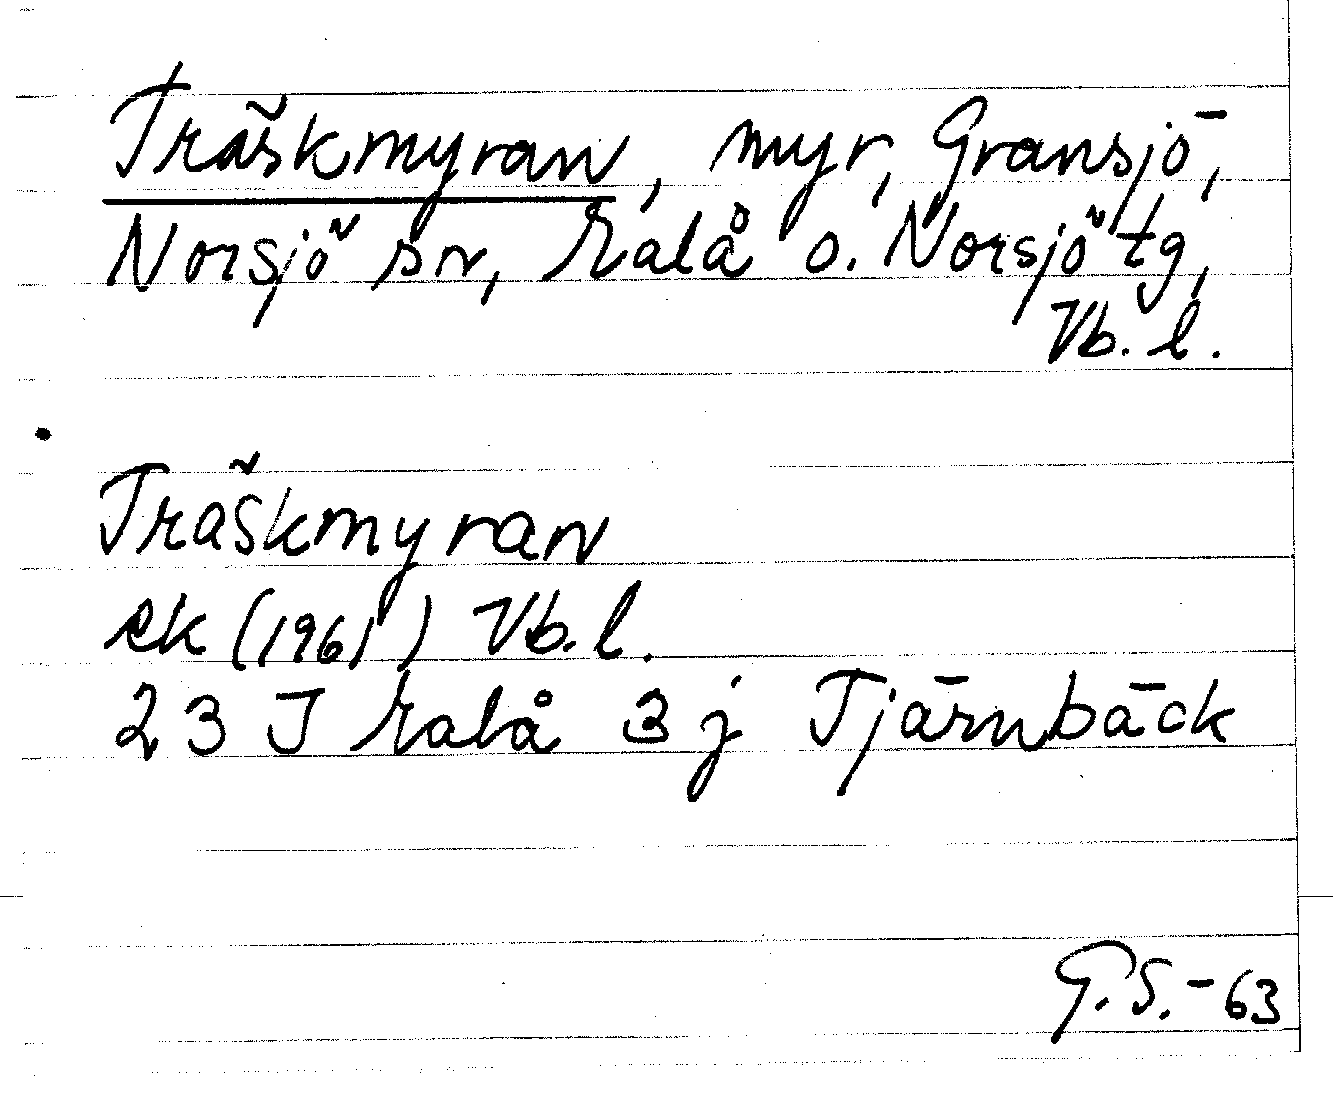 Träskmyran, myr, Gransjö,
Norsjö sn, Malå o. Norsjö tg,
Vb. l.
Träskmyran
ek (1961) Vb. l.
23 J Malå 3 j Tjärnbäck
G. S. - 63